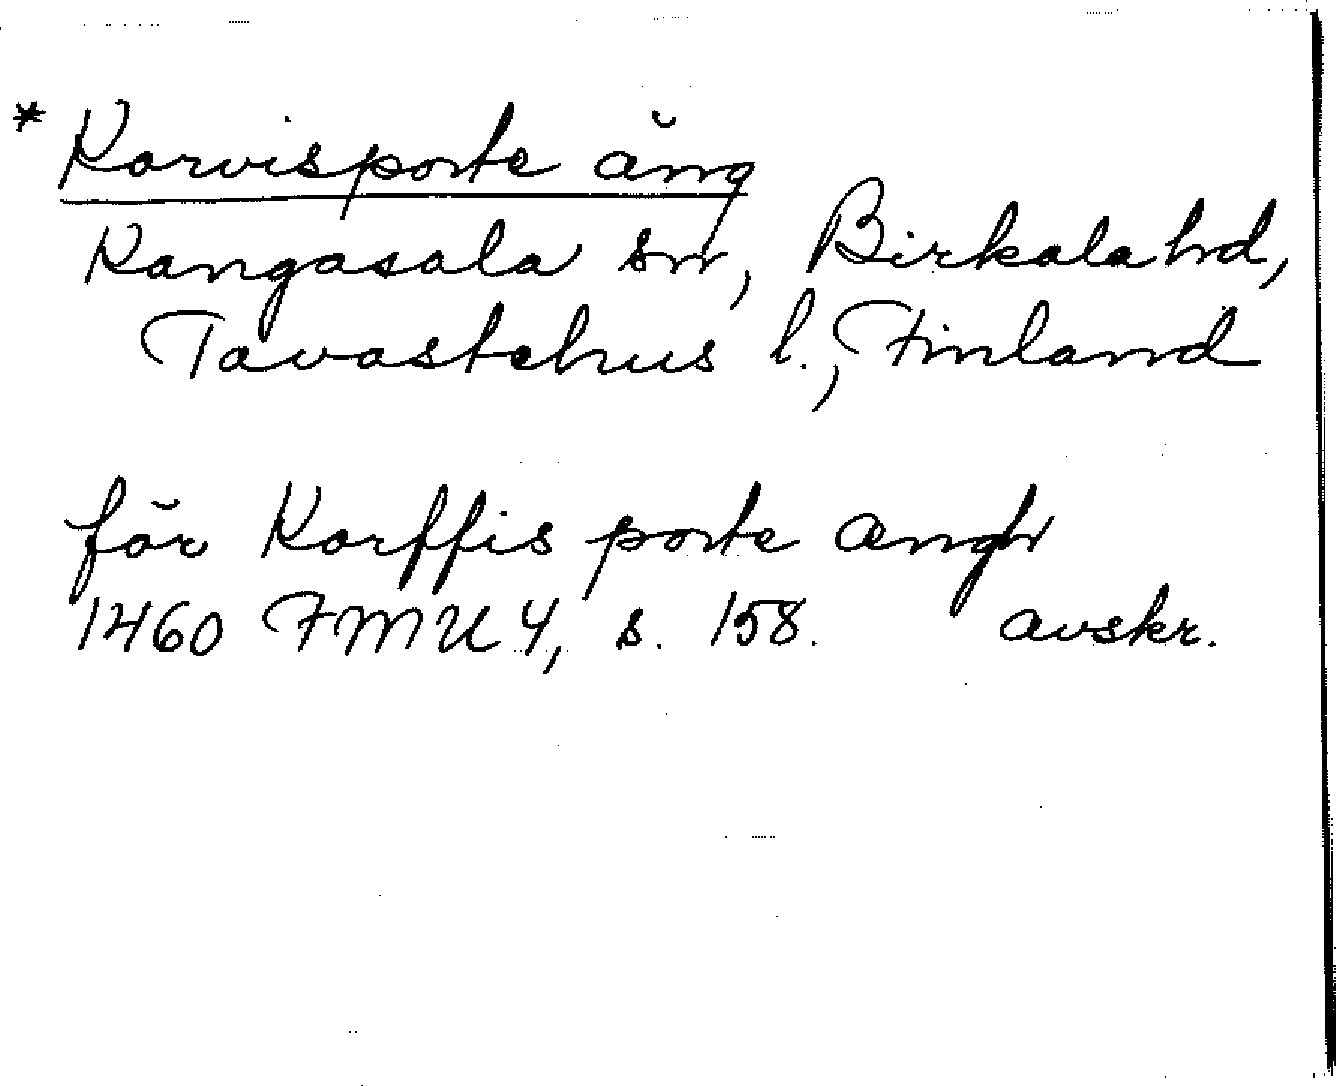 * Korvisporte äng
Kangasala sn, Birkala hd,
Tavastehus l., Finland
för Korffis porte angh
1460 FMU 4, s. 158. avskr.